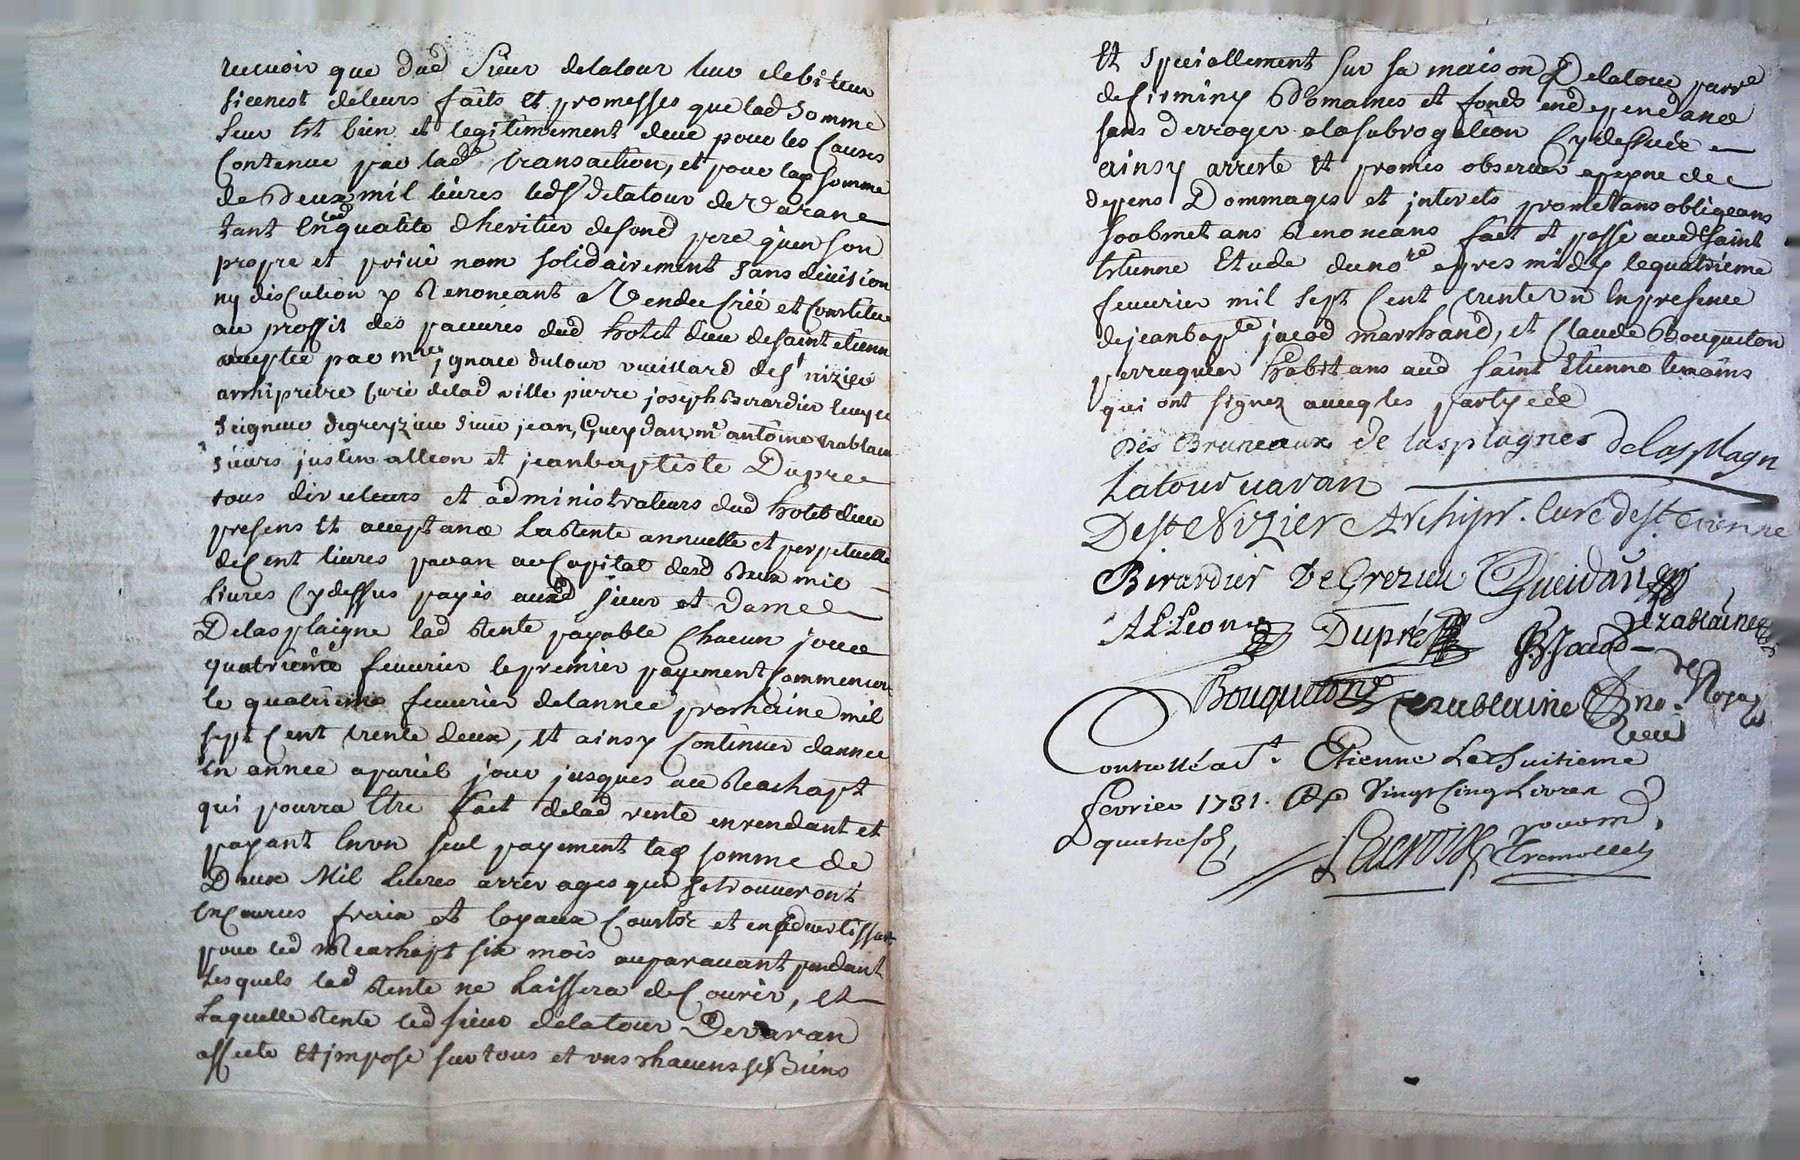 recevoir que dud Sieur delatour leur debiteur
sicenest deleurs faits et promesses que lad somme
leur est bien et legitimement deue pour les Causes
Contenue par lade transaction, et pour laq somme
de Deux mil livres leds delatour de varane
tant Enqualité dheritier desond pere qu'en son
propre et privé nom solidairement sans division
ny discution y Renoncant a Vendu Créé et Constitué
au proffit des pauvres dud hotel dieu desaint etienne
acceptée par mre jgnace dutour vueillard dest nizier
archiprêtre Curé delad ville pierre joseph Berardier Ecuyer
seigneur degreyzieu sieur jean, Gueydan me antoine trablaine
sieurs justin alleon et jeanbaptiste Dupree
tous directeurs et administrateurs dud hotel dieu
presens Et acceptance La Rente annuelle et perpetuelle
deCent livres pavan au Capital desd Deux mil
livres Cydessus payés auxd sieur et Dame
Delasplaigne lad Rente payable Chacun jour
quatrieme fevurier lepremier payement Commencera
le quatrieme fevurier delannée prochaine mil
sept Cent trente deux, Et ainsy Continuer dannee
en annee apareil jour jusques au Reachapt
qui pourra Etre fait delad rente enrendant et
payant Enun seul payement laq somme de
Deux Mil livres arrerages qui se trouveront
encourus fraix et loyaux Coustz et en advertissant
pour led Reachapt six mois auparavant pendant
Lesquels lad Rente ne Laissera deCourir, et
Laquelle Rente led sieur delatour Devaran
affecte Et jmpose sur tous et uns chacuns ses Biens
Et speciallement sur sa maison Delatour parre
defirminy Domaines et fonds endependance
sans derroger alasubrogation Cydessus
ainsy arresté Et promis observer apeyne de
depens Dommages et jnterets promettans obligeans
soubmetans Renonceans fait et passé aud saint
Etienne Etude dunore apres midy lequatrieme
fevurier mil sept Cent trente un Enpresence
dejeanbapte jacod marchand, et Claude Bouqueton
perruquier habitans aud saint Etienne temoins
qui ont signez avecq les partyes
Des Bruneaux de lasplagnes delasplagn
Latour varan
De st Nizier Archipr. Curé de st. Etienne
Birardier De Grezieu Gueidan
ALLeon Dupré JBJacod trablaine
Bouqueton trablaine no. Royal
Controllé a st. Etienne Le huitieme
fevrier 1731. Vingt Cinq Livres
quatre sols,
Lacroix Tremollet